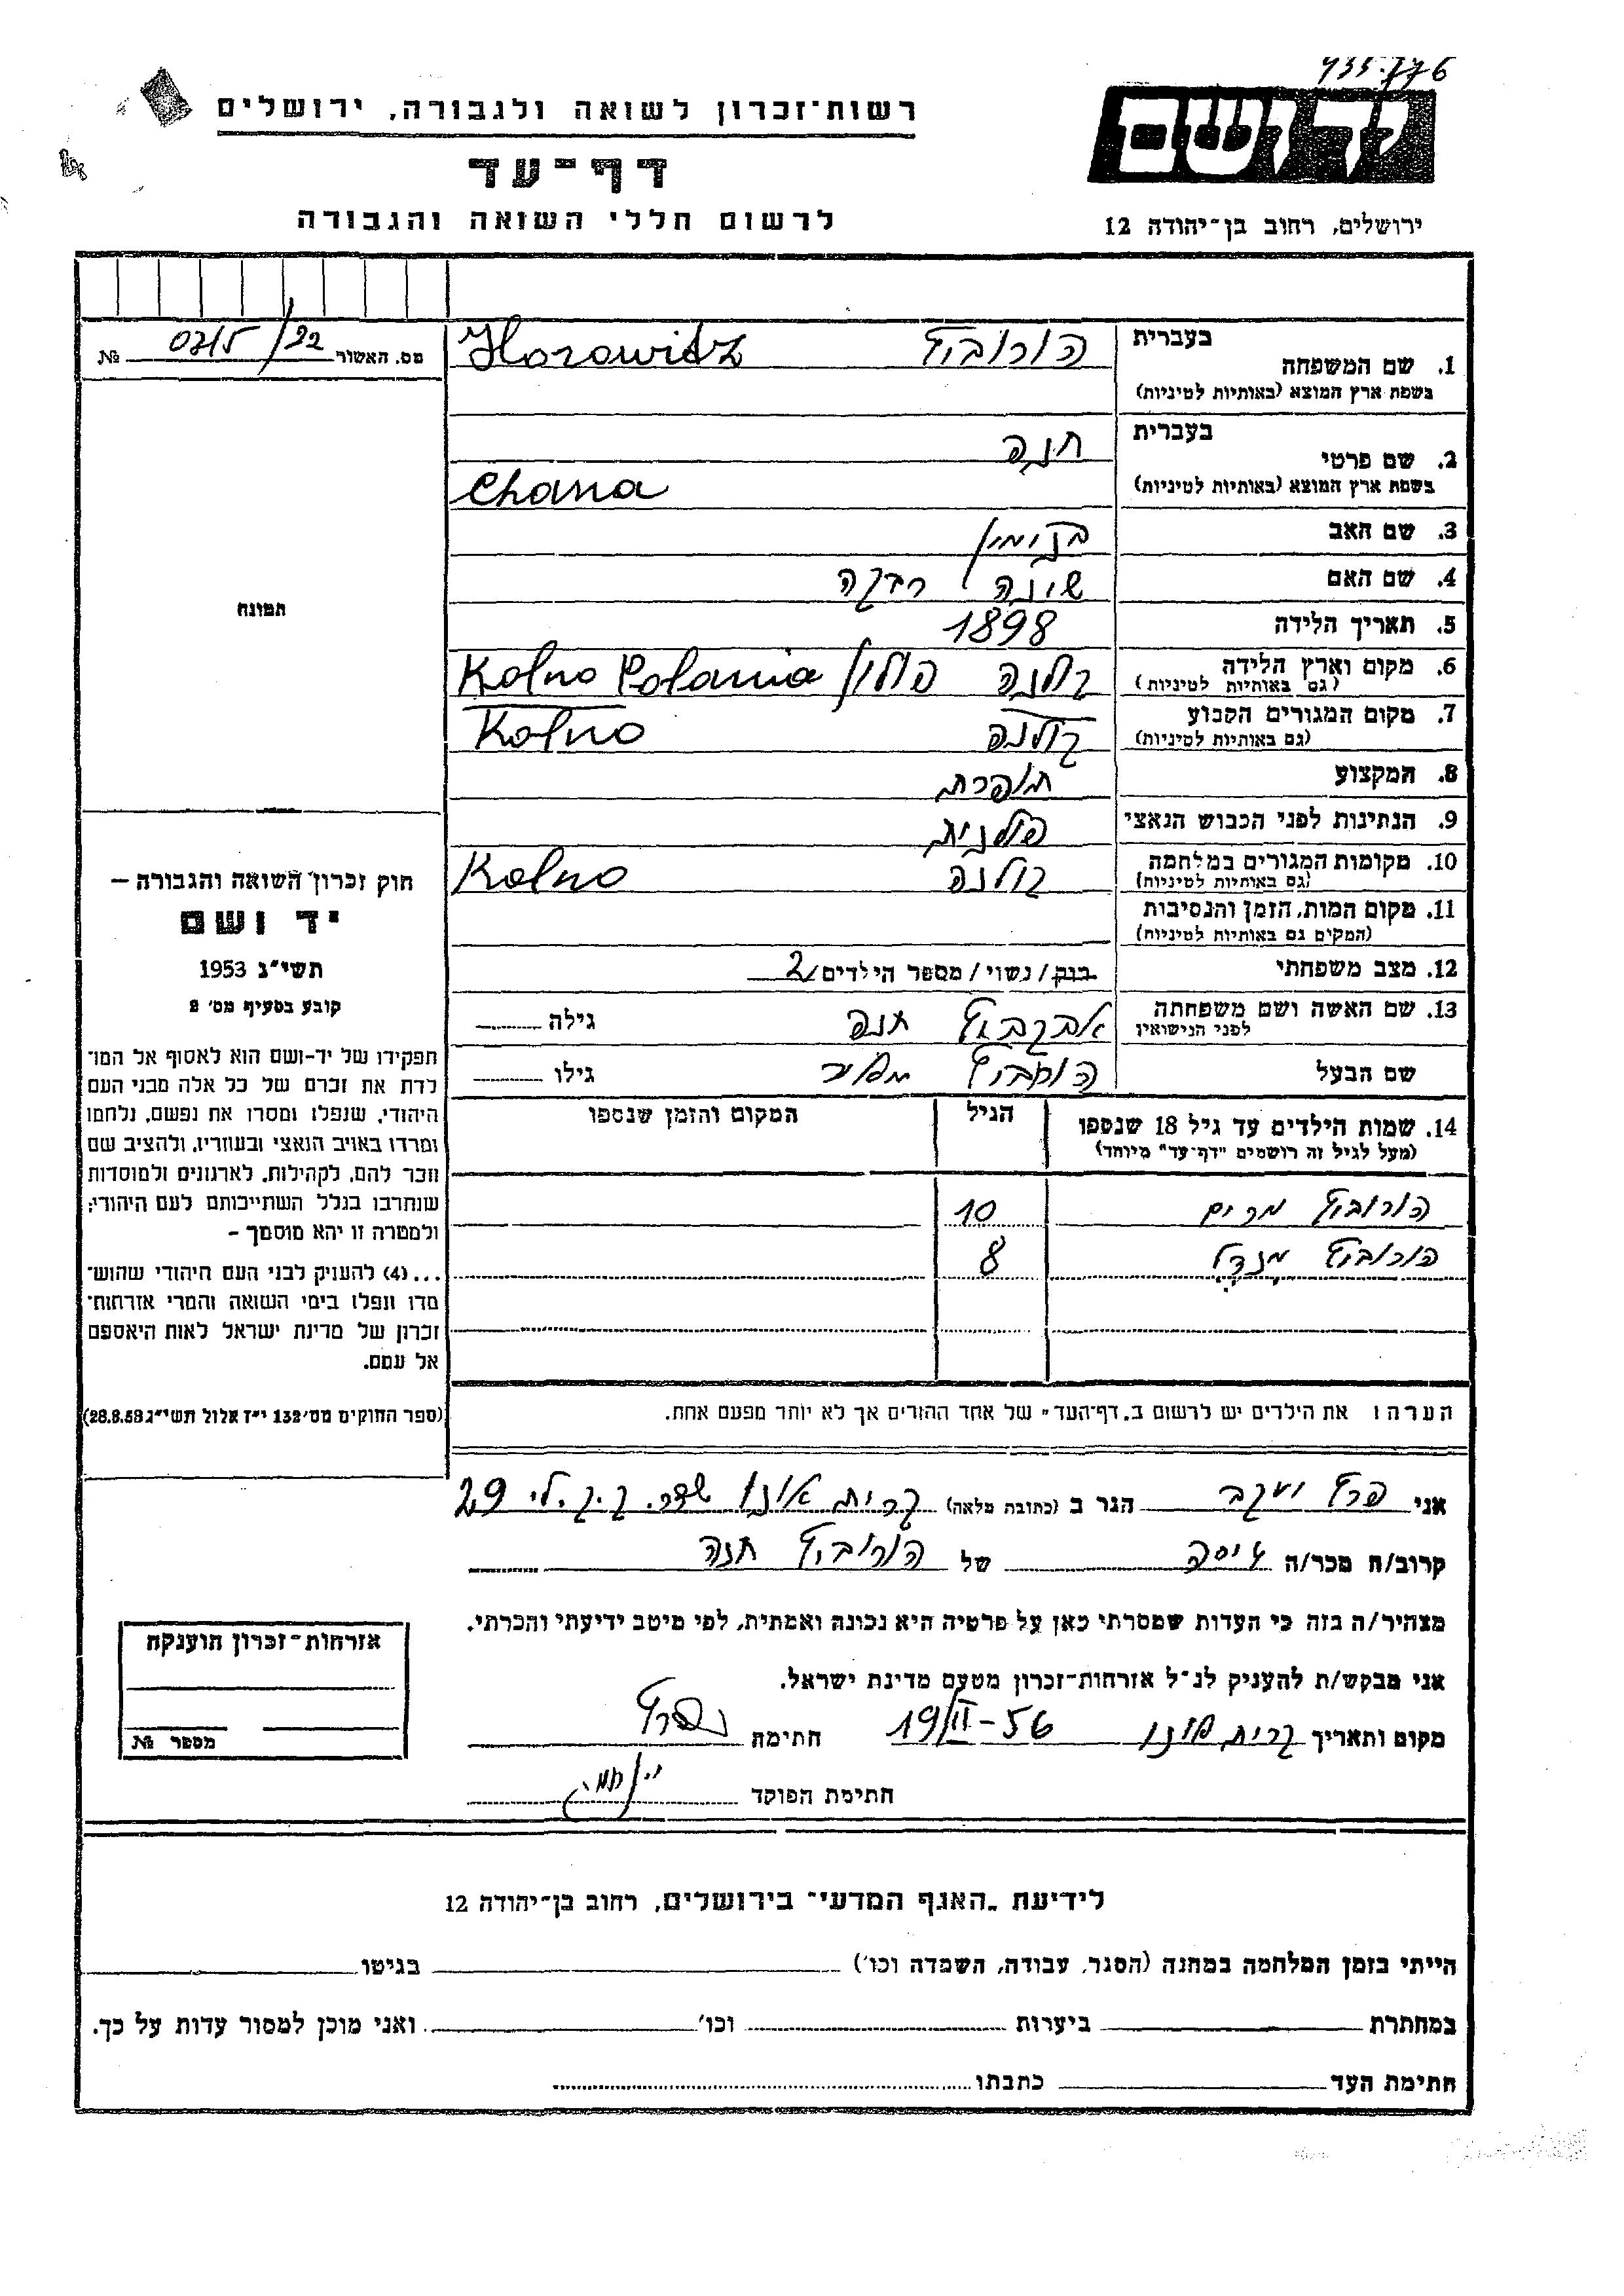 433-776
רשות-זכרון לשואה ולגבורה, ירושלים
יד ושם
דף-עד
לרשום חללי השואה והגבורה
ירושלים, רחוב בן-יהודה 12
בעברית
1. שם המשפחה הורוביץ Horowitz
בשפת ארץ המוצא (באותיות לטיניות)
מס. האשור 0215/22 №
בעברית
2. שם פרטי חנה
בשפת ארץ המוצא (באותיות לטיניות) Chana
3. שם האב בנימין
4. שם האם שיינה רבקה
5. תאריך הלידה 1898
6. מקום וארץ הלידה קולנה פולין Kolno Polania
(גם באותיות לטיניות)
7. מקום המגורים הקבוע קולנה Kolno
(גם באותיות לטיניות)
8. המקצוע תופרת
9. הנתינות לפני הכבוש הנאצי פולנית
10. מקומות המגורים במלחמה קולנה Kolno
(גם באותיות לטיניות)
11. מקום המות, הזמן והנסיבות
(המקום גם באותיות לטיניות)
12. מצב משפחתי רווק/נשוי/מספר הילדים/2
13. שם האשה ושם משפחתה חנה גילה
לפני הנישואין
שם הבעל הורוביץ מאיר גילו
14. שמות הילדים עד גיל 18 שנספו הגיל המקום והזמן שנספו
(מעל לגיל זה רושמים "דף-עד" מיוחד)
הורוביץ מרים 10
הורוביץ מנדל 8
הערה: את הילדים יש לרשום ב"דף-העד" של אחד ההורים אך לא יותר מפעם אחת.
תמונה
חוק זכרון השואה והגבורה –
יד ושם
תשי"ג 1953
קובע בסעיף מס' 2
תפקידו של יד-ושם הוא לאסוף אל המו־
לדת את זכרם של כל אלה מבני העם
היהודי, שנפלו ומסרו את נפשם, נלחמו
ומרדו באויב הנאצי ובעוזריו, ולהציב שם
וזכר להם, לקהילות, לארגונים ולמוסדות
שנחרבו בגלל השתייכותם לעם היהודי;
ולמטרה זו יהא מוסמך –
...(4) להעניק לבני העם היהודי שהוש־
מדו ונפלו בימי השואה והמרי אזרחות־
זכרון של מדינת ישראל לאות היאספם
אל עמם.
(ספר החוקים מס' 132 י"ז אלול תשי"ג 28.8.53)
אני פרץ יעקב הגר ב (כתובת מלאה) קרית אונו שדר. ק.ק.לי 29
קרוב/ה מכר/ה גיסה של הורוביץ חנה
מצהיר/ה בזה כי העדות שמסרתי כאן על פרטיה היא נכונה ואמתית, לפי מיטב ידיעתי והכרתי.
אני מבקש/ת להעניק לנ"ל אזרחות-זכרון מטעם מדינת ישראל.
מקום ותאריך קרית אונו 19/II-56 חתימת
חתימת הפוקד
אזרחות-זכרון הוענקה
מספר №
לידיעת "האגף המדעי" בירושלים, רחוב בן-יהודה 12
הייתי בזמן המלחמה במחנה (הסגר, עבודה, השמדה וכו') בגיטו
במחתרת ביערות וכו' ואני מוכן למסור עדות על כך.
חתימת העד כתבתו